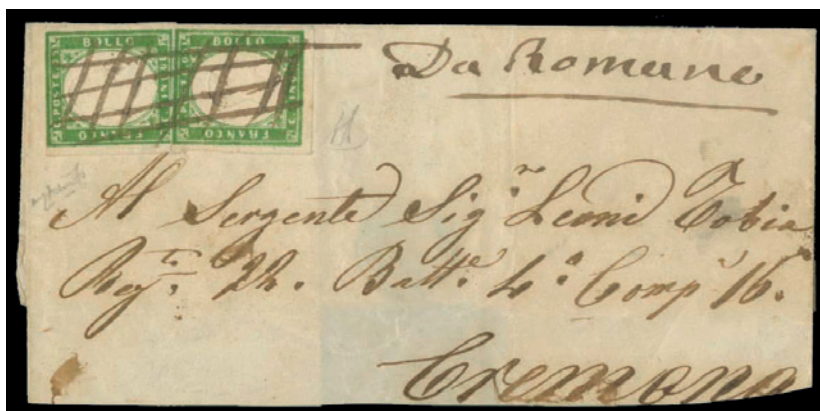 BOLLO BOLLO
C. POSTE C. POSTE
FRANCO FRANCO
Da Romano
Al Sergente Sig.r Leoni Tobia
Reg.to 22. Batt.e 4.o Comp.a 16.a
Cremona